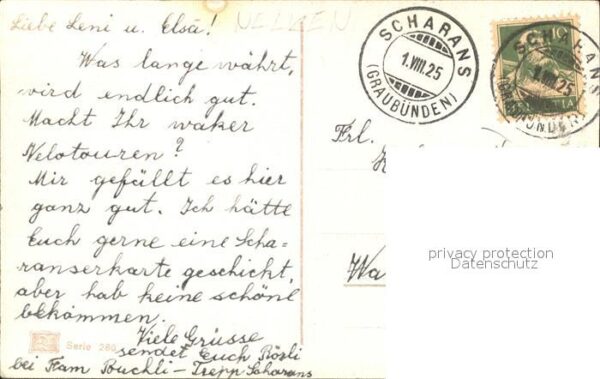 Liebe Leni u. Elsä!
NELKEN
Was lange währt,
wird endlich gut.
Macht Ihr waker
Velotouren?
Mir gefällt es hier
ganz gut. Ich hätte
Euch gerne eine Scha=
ranserkarte geschickt,
aber hab keine schöne
bekommen.
Viele Grüsse
sendet Euch Rösli
bei Fam Buchli-Trepp Scharans
Serie 286
SCHARANS
1.VIII.25
(GRAUBÜNDEN)
10
SCHARANS
1.VIII.25
(GRAUBÜNDEN)
Frl.
Wa
privacy protection
Datenschutz